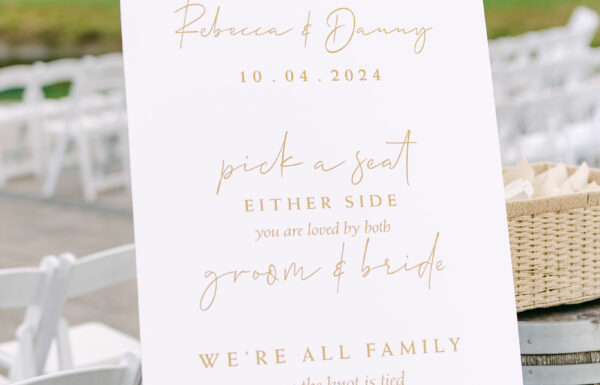 Rebecca & Danny
10.04.2024
pick a seat
EITHER SIDE
you are loved by both
groom & bride
WE'RE ALL FAMILY
the knot is tied